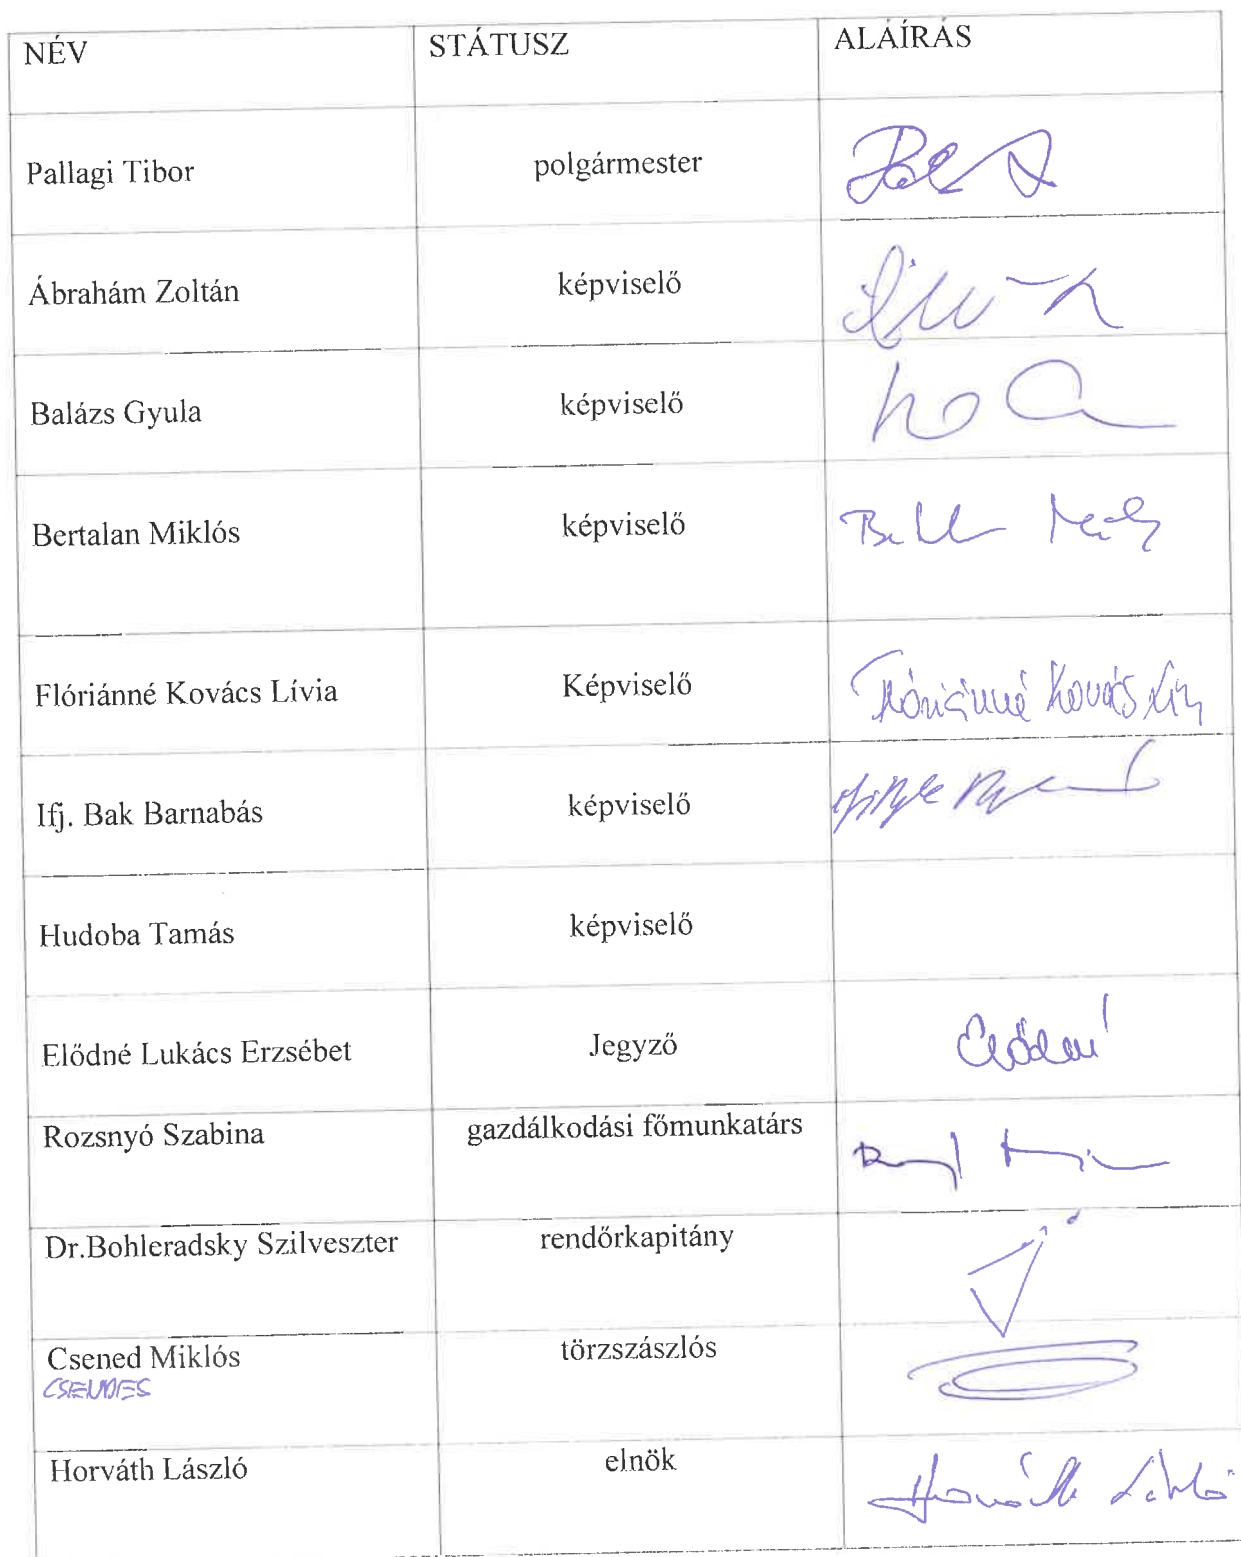 NÉV STÁTUSZ ALÁÍRÁS
Pallagi Tibor polgármester
Ábrahám Zoltán képviselő
Balázs Gyula képviselő
Bertalan Miklós képviselő
Flóriánné Kovács Lívia Képviselő Flóriánné Kovács
Ifj. Bak Barnabás képviselő
Hudoba Tamás képviselő
Elődné Lukács Erzsébet Jegyző Elődné
Rozsnyó Szabina gazdálkodási főmunkatárs
Dr.Bohleradsky Szilveszter rendőrkapitány
Csened Miklós törzszászlós
CSENDES
Horváth László elnök Horváth László